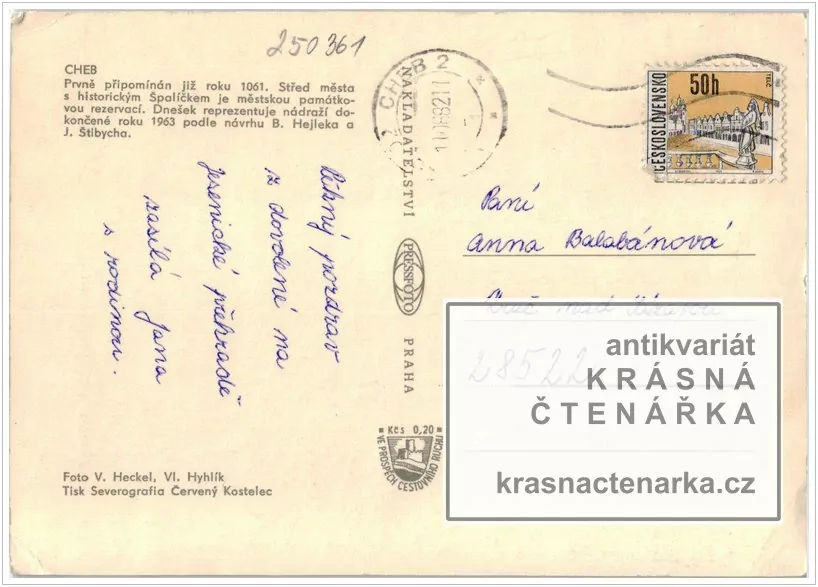 250361
CHEB
Prvně připomínán již roku 1061. Střed města
s historickým Špalíčkem je městskou památko-
vou rezervací. Dnešek reprezentuje nádraží do-
končené roku 1963 podle návrhu B. Hejleka a
J. Štibycha.
CHEB 2
ČESKOSLOVENSKO
50h
TELČ
NAKLADATELSTVÍ
PRESSFOTO
PRAHA
Kčs 0,20
VE PROSPĚCH CESTOVNÍHO RUCHU
Líbný pozdrav
z dovolené na
Jesenické přehradě
zasílá Jana
s rodinou.
Paní
Anna Balabánová
nad
28522
antikvariát
KRÁSNÁ
ČTENÁŘKA
krasnactenarka.cz
Foto V. Heckel, Vl. Hyhlík
Tisk Severografia Červený Kostelec